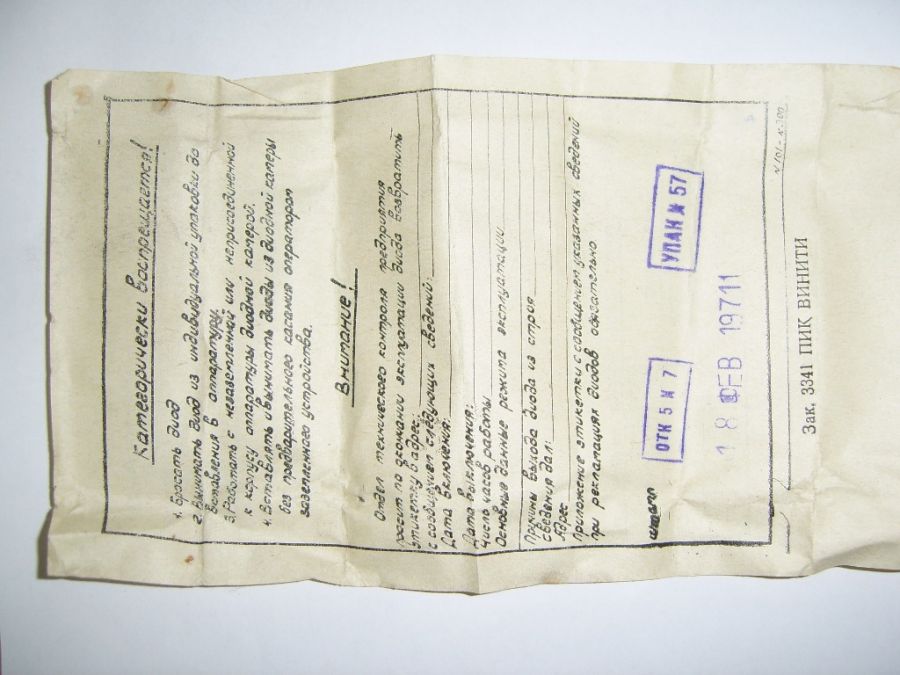 Категорически воспрещается!
1. Бросать диод
2. Вынимать диод из индивидуальной упаковки до
вставления в аппаратуру.
3. Работать с незаземленной или неприсоединенной
к корпусу аппаратуры диодной камерой.
4. Вставлять и вынимать диоды из диодной камеры
без предварительного касания оператором
заземленного устройства.
Внимание!
Отдел технического контроля предприятия
просит по окончании эксплуатации диода возвратить
этикетку в адрес:
с сообщением следующих сведений:
Дата включения:
Дата выключения:
Число часов работы
Основные данные режима эксплуатации:
Причины выхода диода из строя
Сведения дал:
Адрес
Приложение этикетки с сообщением указанных сведений
при рекламациях диодов обязательно
штамп
ОТК 5 № 7
УПАК № 57
18 FEB 1971
Зак. 3341 ПИК ВИНИТИ